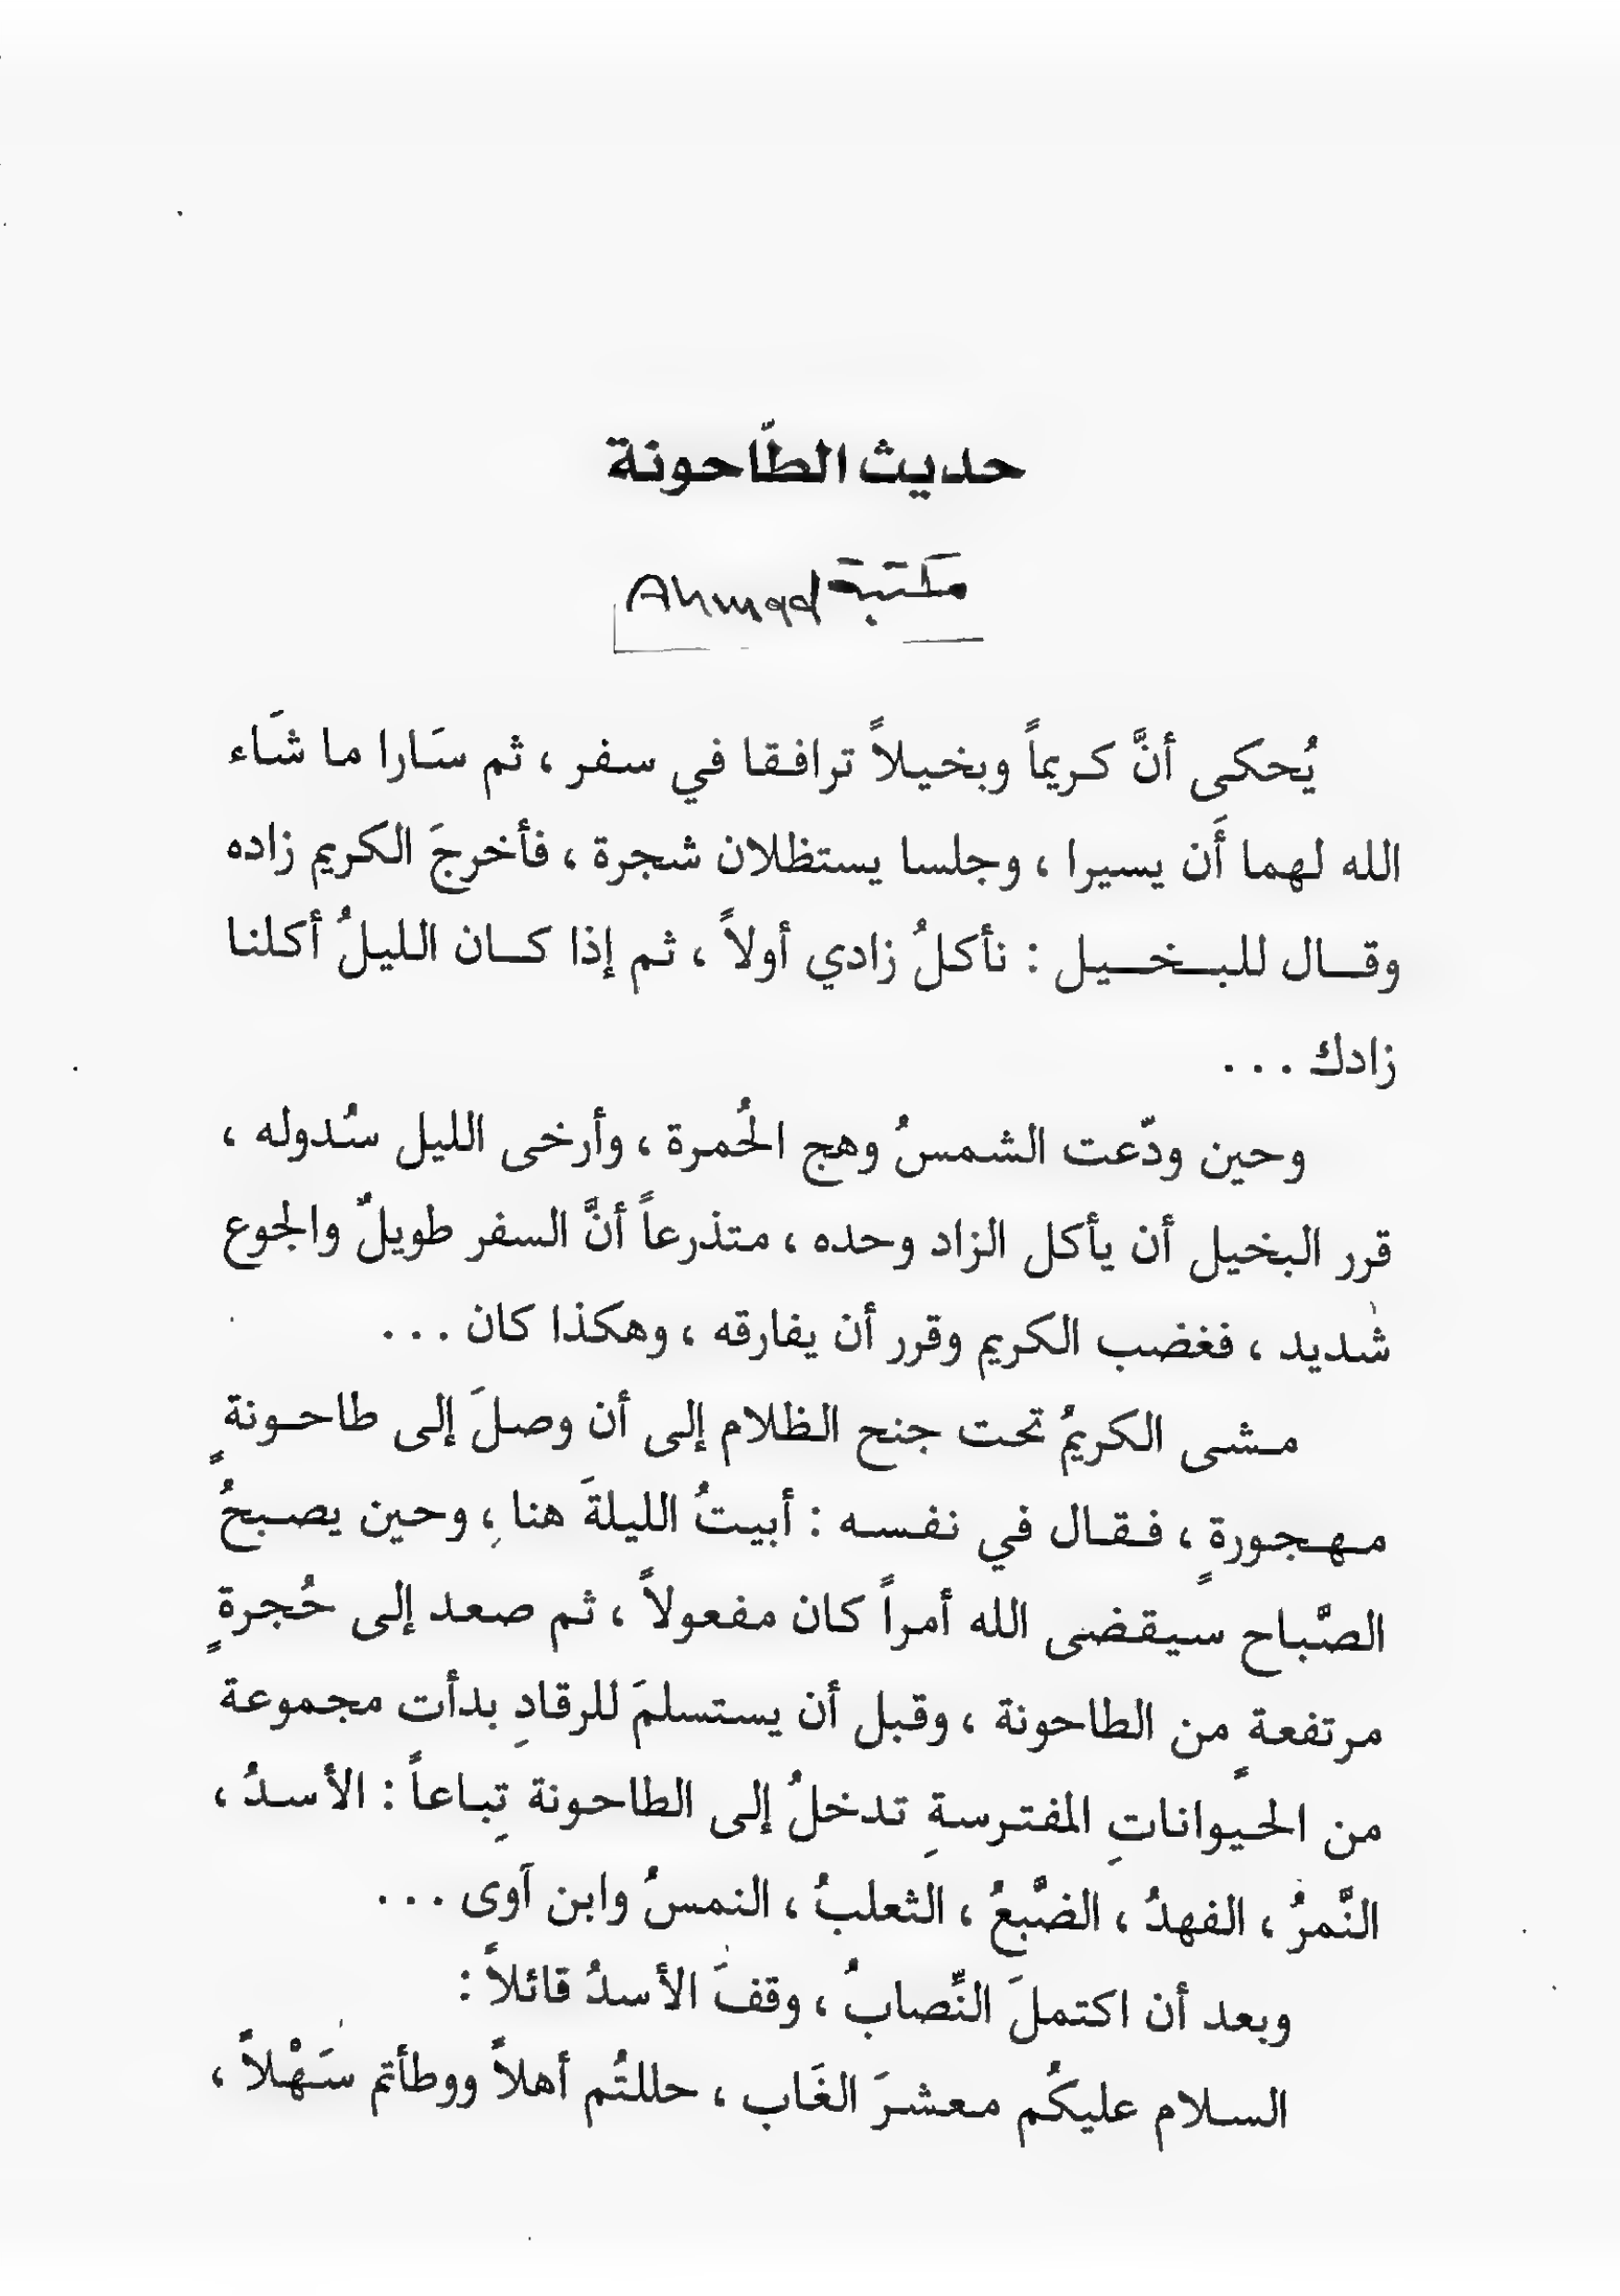 حديث الطّاحونة
مكتبة Ahmad
يُحكى أنَّ كريماً وبخيلاً ترافقا في سفر ، ثم سَارا ما شَاء
الله لهما أَن يسيرا ، وجلسا يستظلان شجرة ، فأخرجَ الكريم زاده
وقال للبخيل : نأكلُ زادي أولاً ، ثم إذا كان الليلُ أكلنا
زادك . . .
وحين ودّعت الشمسُ وهج الحُمرة ، وأرخى الليل سُدوله ،
قرر البخيل أن يأكل الزاد وحده ، متذرعاً أنَّ السفر طويلٌ والجوع
شديد ، فغضب الكريم وقرر أن يفارقه ، وهكذا كان . . .
مشى الكريمُ تحت جنح الظلام إلى أن وصلَ إلى طاحونةٍ
مهجورةٍ ، فقال في نفسه : أبيتُ الليلةَ هنا ، وحين يصبحُ
الصَّباح سيقضي الله أمراً كان مفعولاً ، ثم صعد إلى حُجرةٍ
مرتفعةٍ من الطاحونة ، وقبل أن يستسلمَ للرقادِ بدأت مجموعة
من الحيواناتِ المفترسةِ تدخلُ إلى الطاحونة تِباعاً : الأسدُ ،
النَّمرُ ، الفهدُ ، الضَّبعُ ، الثعلبُ ، النمسُ وابن آوى . . .
وبعد أن اكتملَ النِّصابُ ، وقفَ الأسدُ قائلاً :
السلام عليكُم معشرَ الغَاب ، حللتُم أهلاً ووطأتم سَهْلاً ،